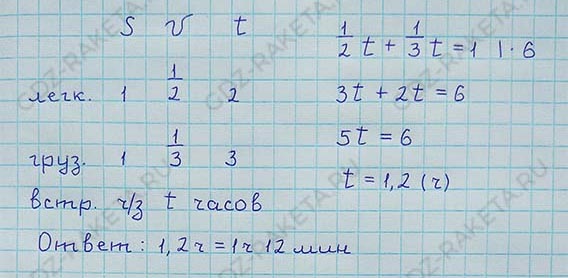 S v t
легк. 1 1/2 2
груз. 1 1/3 3
встр. ч/з t часов
1/2 t + 1/3 t = 1 | · 6
3t + 2t = 6
5t = 6
t = 1,2 (ч)
Ответ: 1,2ч = 1ч 12 мин
GDZ-RAKETA.RU